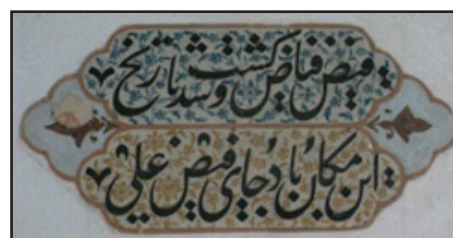 فیض فیاض گشت و شد تاریخ
این مکان باد جای فیض علی